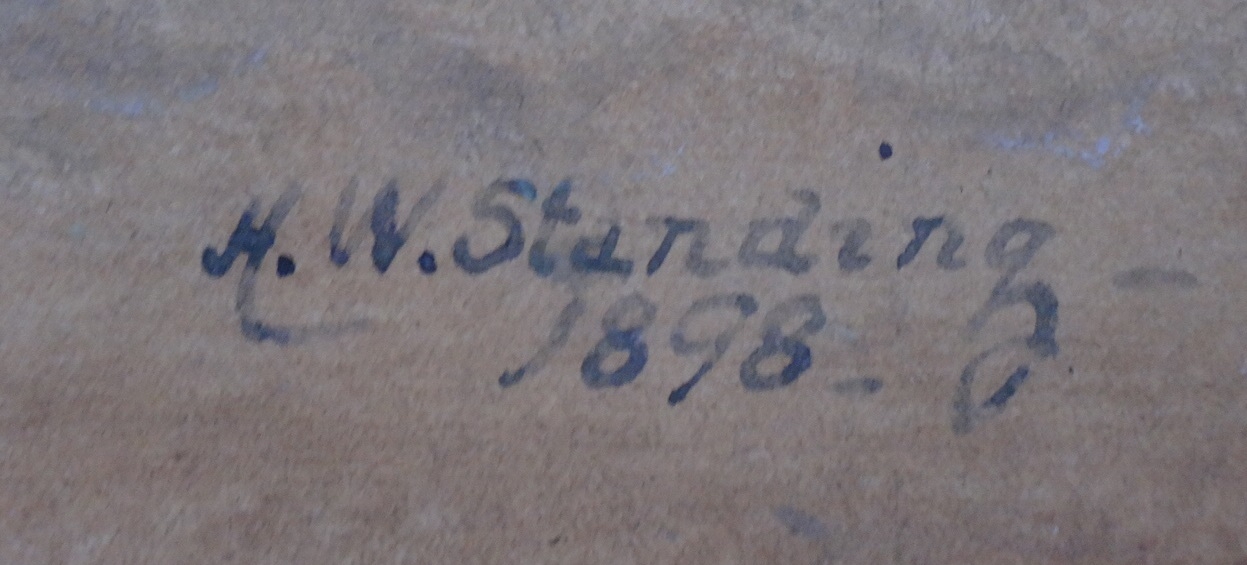 H. W. Standing -
1898 -